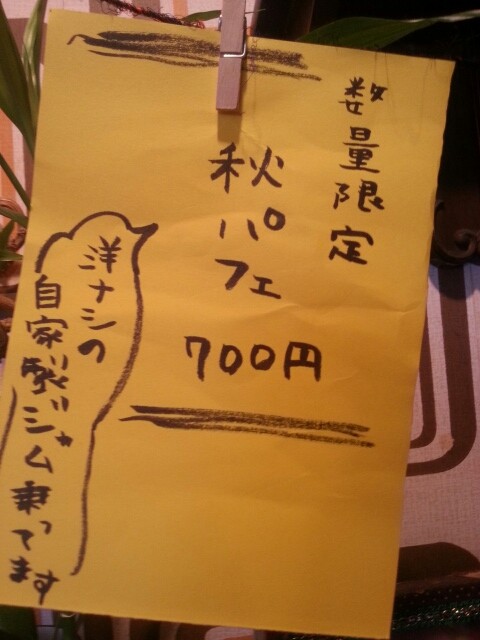 数量限定
秋パフェ
700円
洋ナシの
自家製ジャム乗ってます